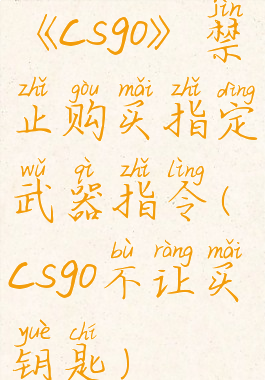 jìn
《csgo》禁
zhǐ gòu mǎi zhǐ dìng
止购买指定
wǔ qì zhǐ lìng
武器指令(
bù ràng mǎi
csgo不让买
yuè chí
钥匙)